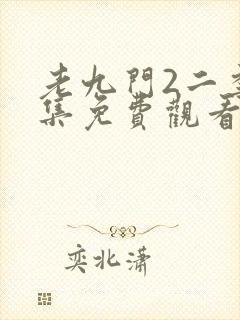 老九門2二季
集免費觀看
奕北瀟